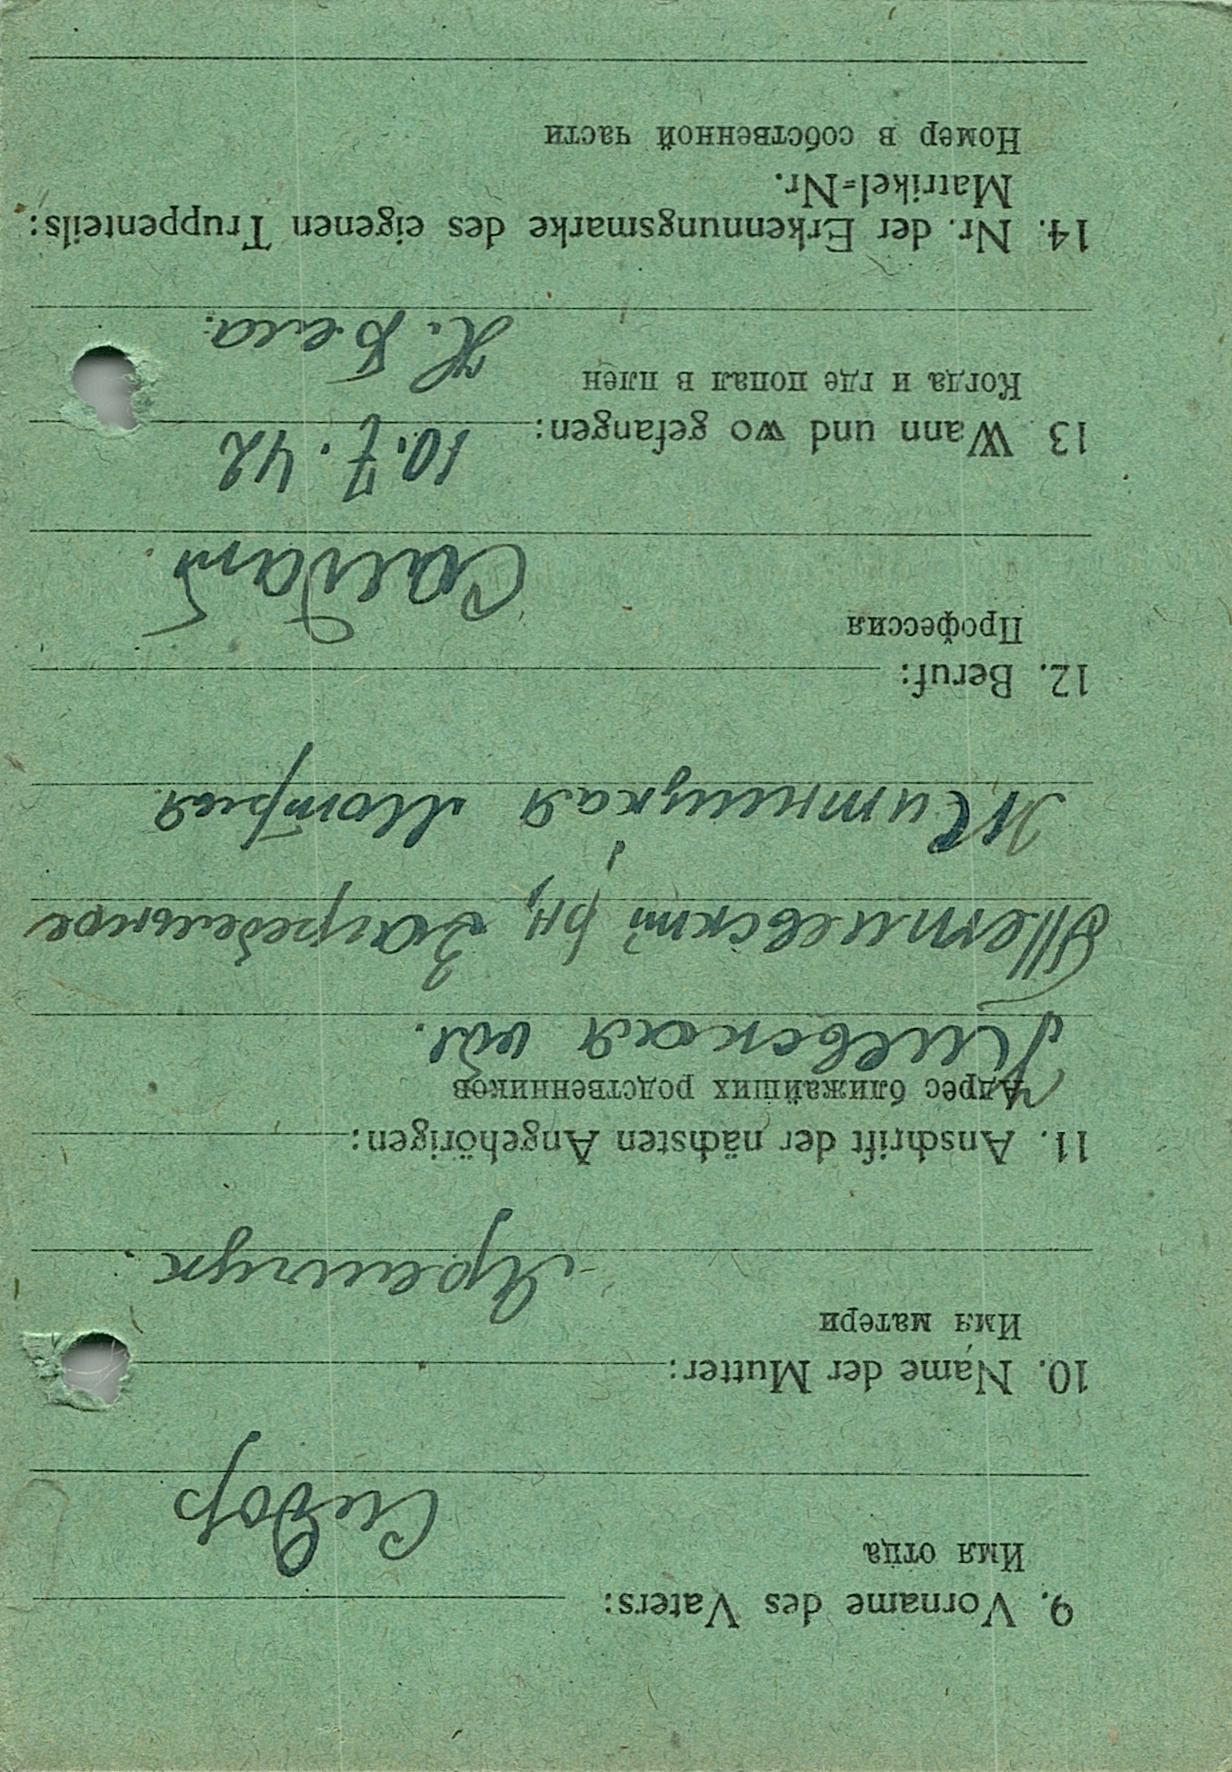 9. Vorname des Vaters:
Имя отца
Сидор
10. Name der Mutter:
Имя матери
Яремчук.
11. Anschrift der nächsten Angehörigen:
Адрес ближайших родственников
Киевская обл.
рн, Загребельное
Житницкая Мотрия.
12. Beruf:
Профессия
Салдат.
13 Wann und wo gefangen:
10.7.42
Когда и где попал в плен
Н. Бела.
14. Nr. der Erkennungsmarke des eigenen Truppenteils:
Matrikel-Nr.
Номер в собственной части